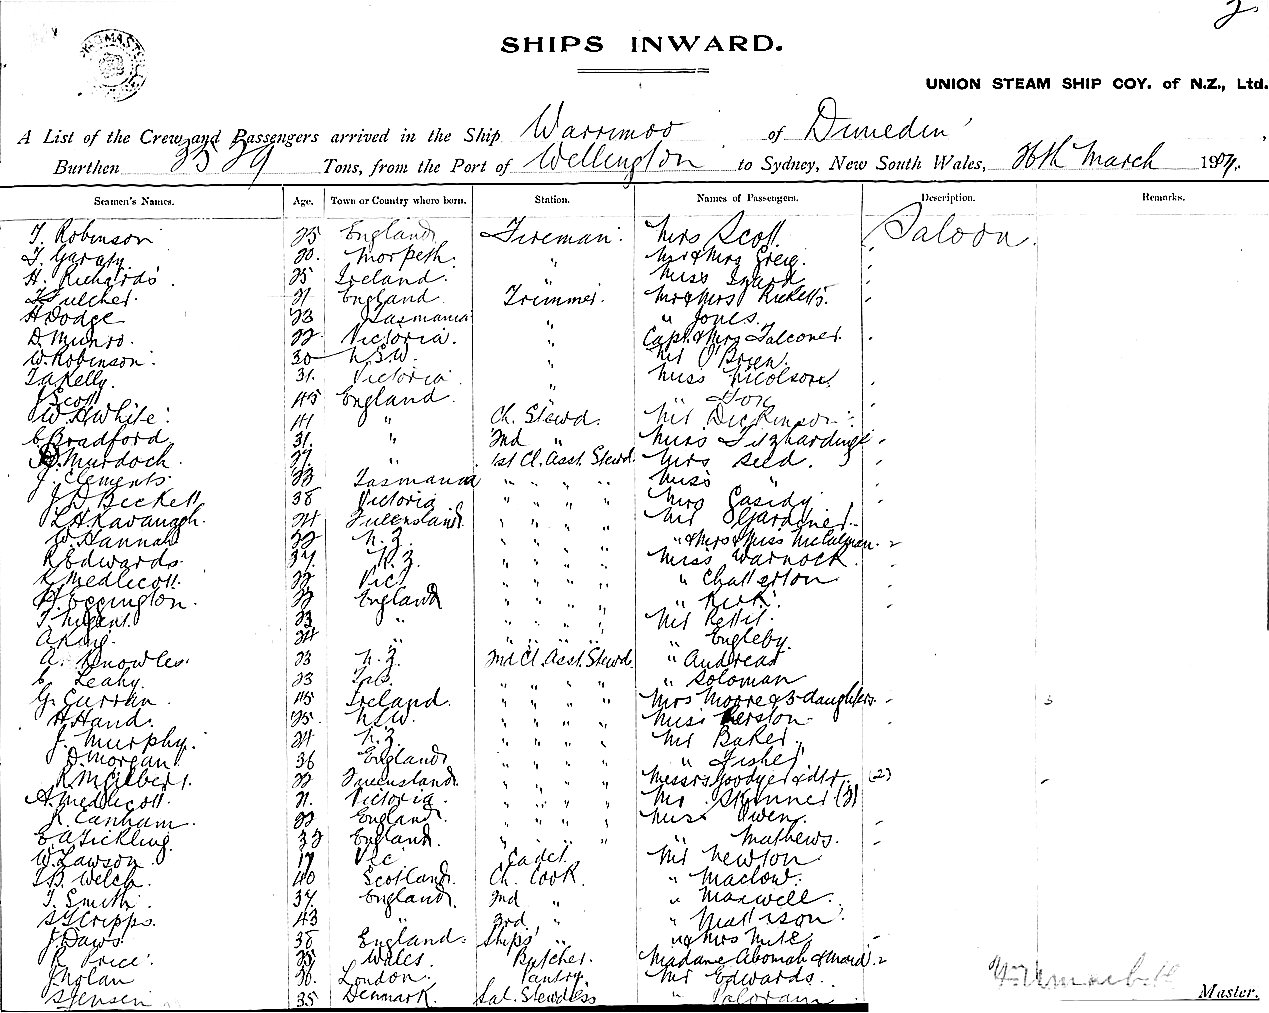 2
SHIPS INWARD.
UNION STEAM SHIP COY. of N.Z., Ltd.
A List of the Crew and Passengers arrived in the Ship Warrimoo of Dunedin
Burthen 3529 Tons, from the Port of Wellington to Sydney, New South Wales, 26th March 190
Seamen's Names. Age. Town or Country where born. Station. Names of Passengers. Description. Remarks.
T. Robinson 25 England Fireman. Mrs Scott Saloon
20. Morpeth. " Mr & Mrs Greig.
H. Richards. 25 Ireland. " Miss
21 England Trimmer. Mr & Mrs Ricketts.
H Dodge 23 Tasmania " " Jones.
D. Munro. 22 Victoria. " Capt. & Mrs Falconer.
W. Robinson. 30 N.S.W. " Mr O'Brien.
Kelly. 31. Victoria " Miss Nicolson
J Scott 45 England. " "
W. H. White. 41 " Ch. Stewd. Mr Dickinson.
C. Bradford 31. " 2nd " Miss Fitzhardinge
Murdoch 27. " 1st Cl. Asst. Stewd. Mrs Seed.
J. Clements. 23 Tasmania " " " " Miss "
J. D. Beckett 38 Victoria " " " " Mrs Casidy.
L H Kavanagh. 24 Queensland. " " " " Mr Gardiner.
W. Hannah 22 N.Z. " " " " " & Mrs & Miss 2
R Edwards. 37 N.Z. " " " " Miss Warnock.
R Medlicott. 22 Vic. " " " " " Chatterton
H. Eggington. 22 England " " " " " Kirk.
T. Nugent. 23 " " " " " Mr Pettit.
A King. 24 " " " " " " Engleby.
A. Knowles. 23 N.Z. 2nd Cl. Asst. Stewd. " Andreas
C. Leahy. 23 Tas. " " " " " Soloman
G. Curran. 45 Ireland. " " " " Mrs Moore & 3 daughters. 3
H. Hand. 25. N.S.W. " " " " Miss Kerston.
J. Murphy. 24 N.Z. " " " " Mr Baker.
D. Morgan. 36 England " " " " " Fisher
R. McGilbert. 22 Queensland. " " " " Messrs Goodyer & (2)
A. Medlicott. 21. Victoria. " " " " Mr Skinner (3)
R. Canham. 22 England. " " " " Miss Owen.
E. A. Tickling. 32 England. " " " " " Mathews.
W. Lawson 17 Vic Cadet. Mr Newton
B. Welch. 40 Scotland. Ch. Cook. " Maclow.
T. Smith. 37 England. 2nd " " Maxwell.
Cripps. 43 " 3rd " " Mattison
J Daws. 38 England. Ships' " " & Mrs
R. Price. 25 Wales. Butcher. Madame Abomah & Maid. 2
J Nolan 26. London. Pantry. Mr Edwards.
S Jensen 35 Denmark. Sal. Stewdess "
Master.